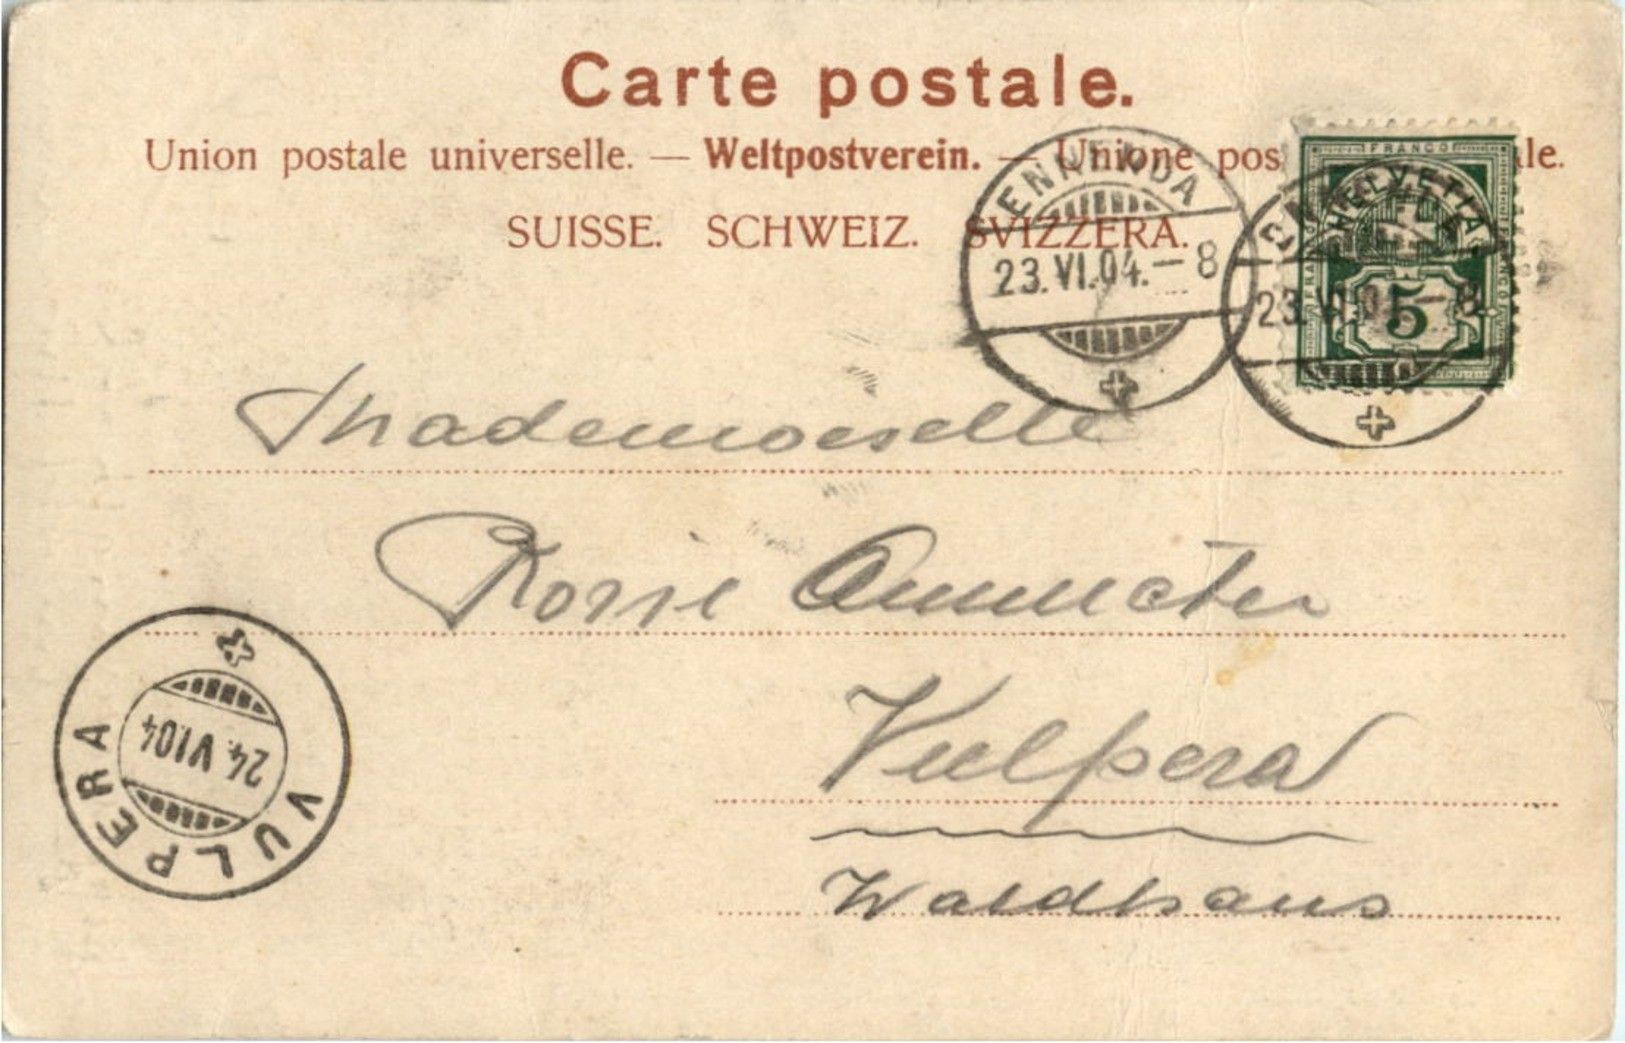 Carte postale.
Union postale universelle. — Weltpostverein. — Unione pos le.
SUISSE. SCHWEIZ. SVIZZERA.
ENNENDA
23.VI.04.–8
FRANCO
HELVETIA
5
23.VI.04–8
Mademoiselle
Rosie
Vulpera
Waldhaus
VULPERA
24.VI.04